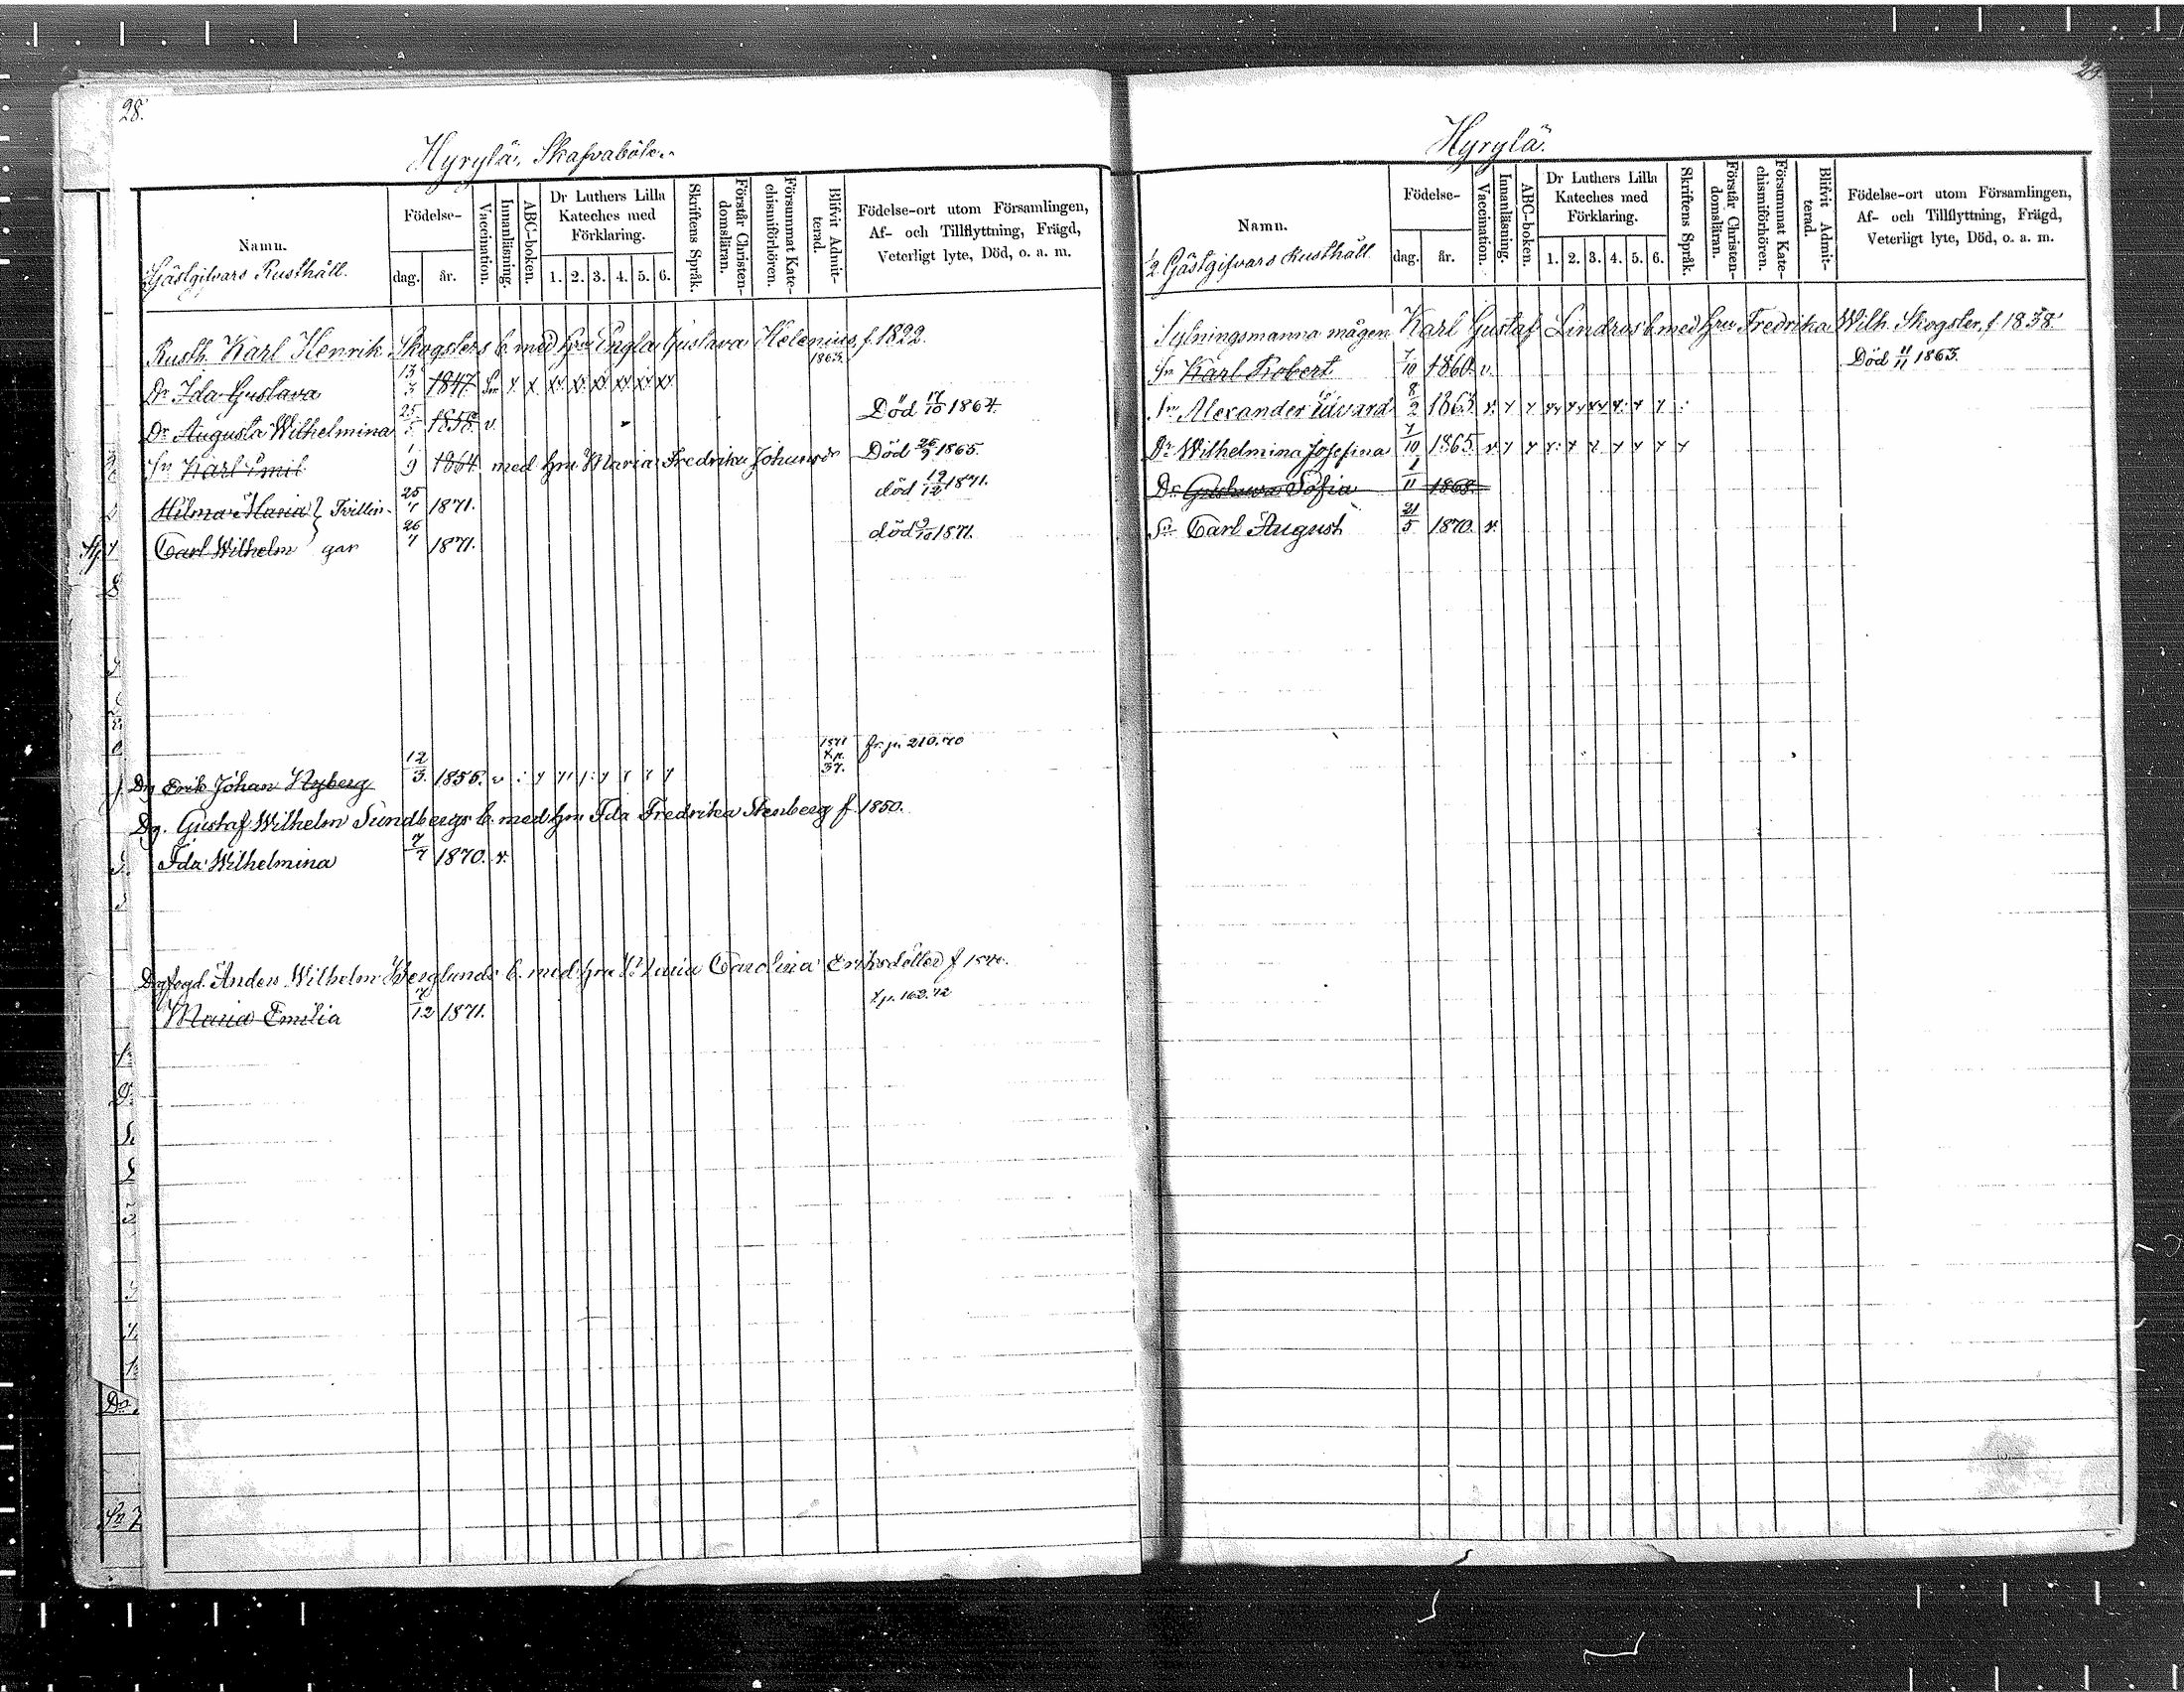 28.
Hyrylä, Skafvaböle.
Namn.
Födelse-
dag.
år.
Vaccination.
Innanläsning.
ABC-boken.
Dr Luthers Lilla Kateches med Förklaring.
1. 2. 3. 4. 5. 6.
Skriftens Språk.
Förstår Christen-domsläran.
Försummat Kate-chismiförhören.
Blifvit Admit-terad.
Födelse-ort utom Församlingen,
Af- och Tillflyttning, Frägd,
Veterligt lyte, Död, o. a. m.
Gästgifvars Rusthåll.
Rusth. Karl Henrik Skogsters b. med hru Engla Gustava Helenius f. 1822.
Dr Ida Gustava 13/3 1847 x x x x x x x x 1863.
Dr Augusta Wilhelmina 25/5 1858 v. Död 17/10 1864.
Sn Karl Emil 1/9 1864 med hru Maria Fredrika Johansdr Död 26/9 1865.
Hilma Maria } Tvillin- 25/7 1871. död 19/12 1871.
Carl Wilhelm } gar 26/7 1871. död 9/10 1871.
Drg Erik Johan Nyberg 12/3 1855. v 1871 x p. 37. fr. p. 210.70
Dg. Gustaf Wilhelm Sundbergs b. med hru Ida Fredrika Stenberg f 1850.
Ida Wilhelmina 7/7 1870. v.
Anders Wilhelm Berglunds b. med hru Maria Carolina Eriksdotter f 1840.
Maria Emilia 12 1871. x p. 162.72
Hyrylä.
Namn.
Födelse-
dag.
år.
Vaccination.
Innanläsning.
ABC-boken.
Dr Luthers Lilla Kateches med Förklaring.
1. 2. 3. 4. 5. 6.
Skriftens Språk.
Förstår Christen-domsläran.
Försummat Kate-chismiförhören.
Blifvit Admit-terad.
Födelse-ort utom Församlingen,
Af- och Tillflyttning, Frägd,
Veterligt lyte, Död, o. a. m.
1/2 Gästgifvars Rusthåll
Sytningsmanna mågen Karl Gustaf Lindros b. med hru Fredrika Wilh. Skogster, f. 1838.
Sn Karl Robert 7/10 1860. v. Död 11/11 1863.
Sn Alexander Edvard 8/2 1863
Dr Wilhelmina Josefina 7/10 1865
Dr Gustava Sofia 1/11 1868.
Sn Carl August 21/5 1870. v.